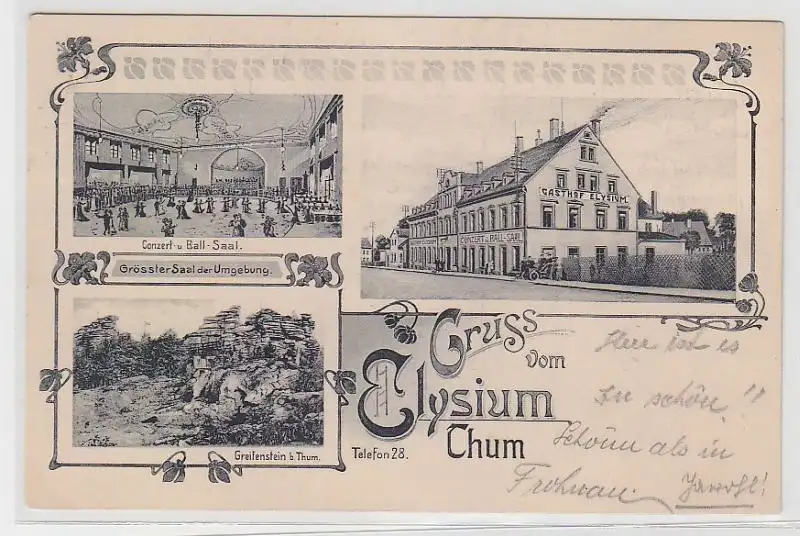 Conzert- u. Ball-Saal.
Grösster Saal der Umgebung.
Greifenstein b. Thum.
GASTHOF ELYSIUM.
CONZERT u. BALL-SAAL
Gruss
vom
Elysium
Thum
Telefon 28.
Hier ist es
zu schön!!
Schöner als in
Frohnau.
Jawohl!